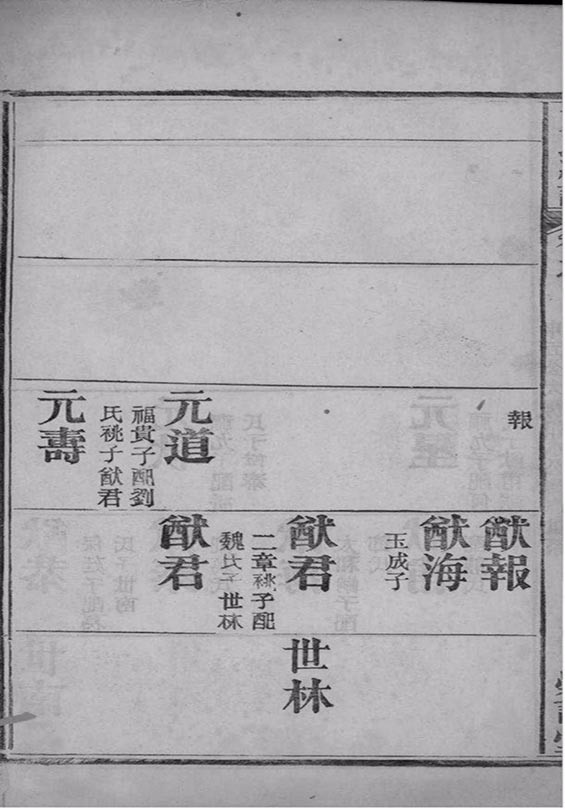 報
元道
福貴子配劉
氏祧子猷君
元壽
猷報
猷海
玉成子
猷君
二章祧子配
魏氏子世林
猷君
世林